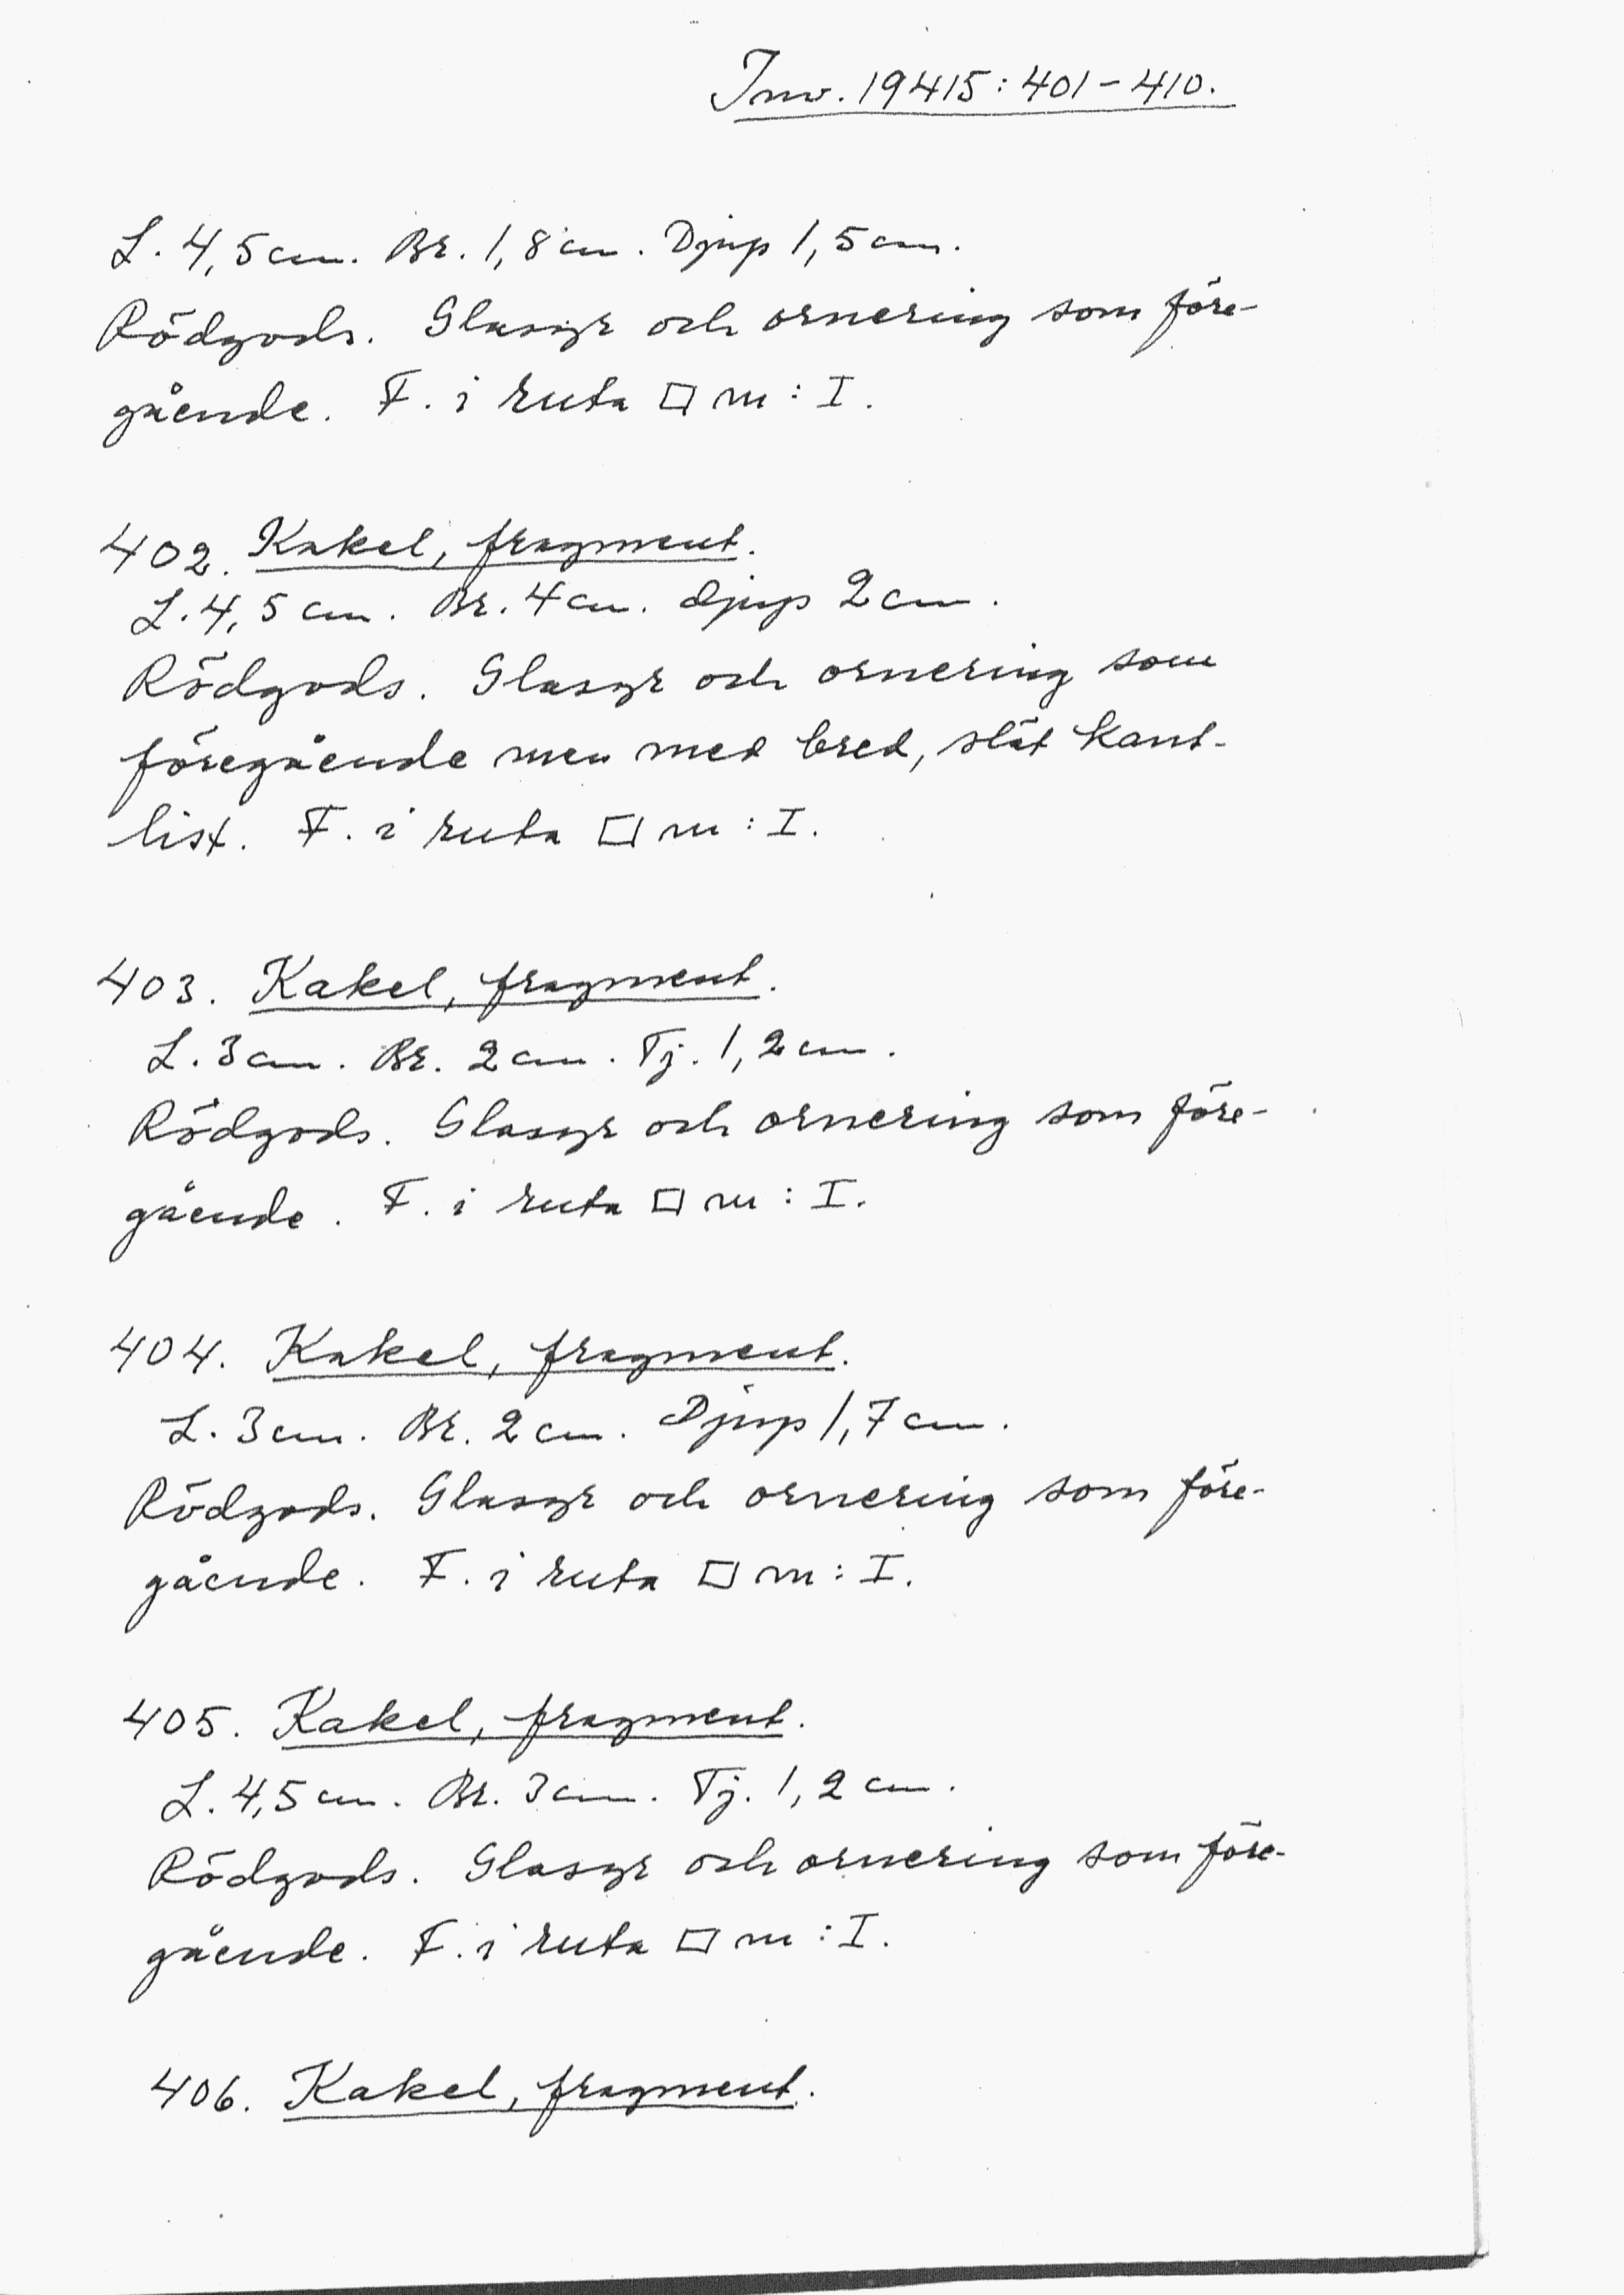 Inv. 19415:401-410.
L. 4,5cm. Br. 1,8cm. Djup 1,5cm.
Rödgods. Glasyr och ornering som före-
gående. F. i ruta □ m:I.
402. Kakel, fragment.
L. 4,5 cm. Br. 4cm. djup 2cm.
Rödgods. Glasyr och ornering som
föregående men med bred, slät kant-
list. F. i ruta □ m:I.
403. Kakel, fragment.
L. 3cm. Br. 2cm. Tj. 1,2cm.
Rödgods. Glasyr och ornering som före-
gående. F. i ruta □ m:I.
404. Kakel, fragment.
L. 3cm. Br. 2cm. Djup 1,7cm.
Rödgods. Glasyr och ornering som före-
gående. F. i ruta □ m:I.
405. Kakel, fragment.
L. 4,5cm. Br. 3cm. Tj. 1,2 cm.
Rödgods. Glasyr och ornering som före-
gående. F. i ruta □ m:I.
406. Kakel, fragment.